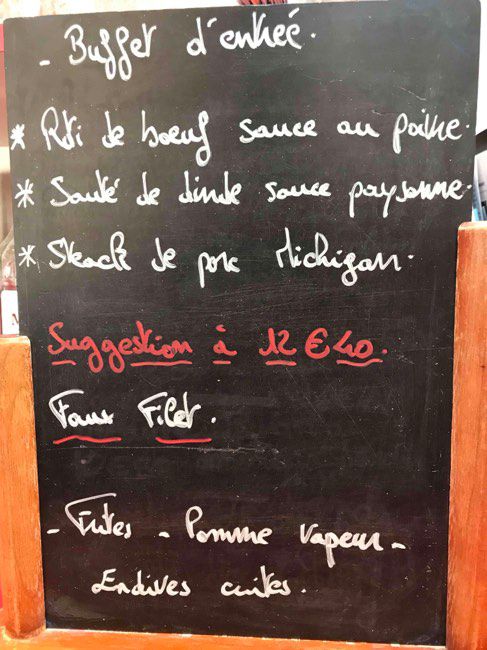 - Buffet d'entrée.
* Rôti de boeuf sauce au poivre.
* Sauté de dinde sauce paysanne.
* Steack de porc Michigan.
Suggestion à 12 € 40.
Faux Filet.
- Frites - Pomme vapeur -
Endives cuites.